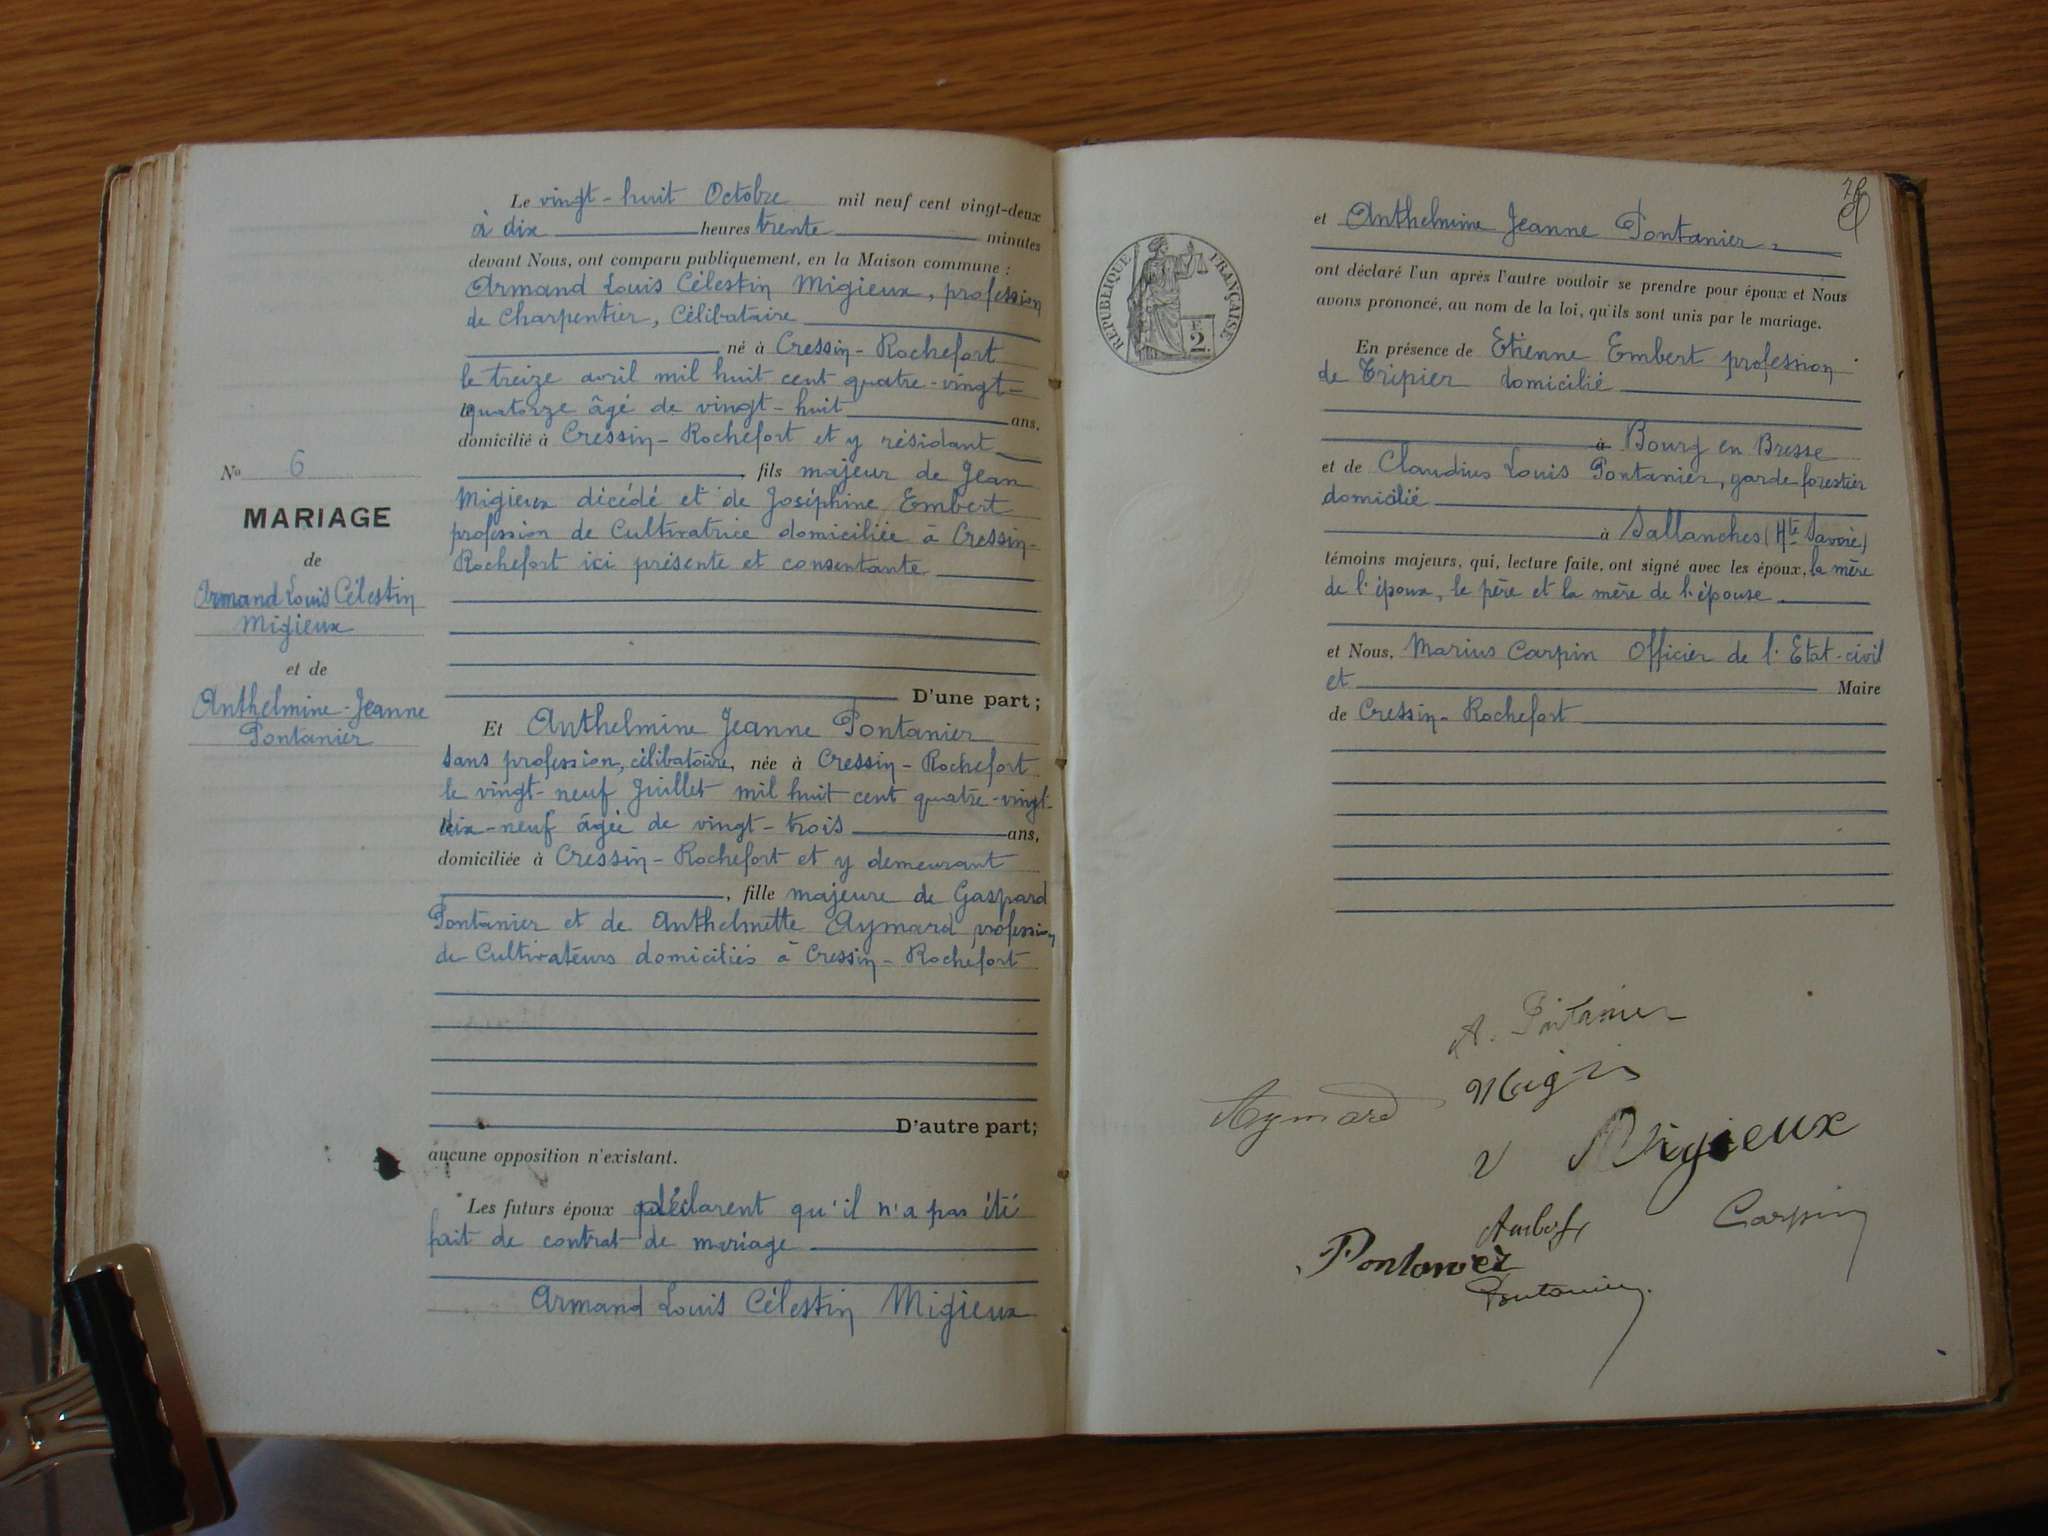 Le vingt-huit Octobre mil neuf cent vingt-deux
à dix heures trente minutes
devant Nous, ont comparu publiquement, en la Maison commune :
Armand Louis Célestin Migieux, profession
de Charpentier, Célibataire
né à Cressin-Rochefort
le treize avril mil huit cent quatre-vingt-
quatorze âgé de vingt-huit ans,
domicilié à Cressin-Rochefort et y résidant
, fils majeur de Jean
Migieux décédé et de Joséphine Embert
profession de Cultivatrice domiciliée à Cressin-
Rochefort ici présente et consentante
D'une part;
Et Anthelmine Jeanne Pontanier
sans profession, célibataire, née à Cressin-Rochefort
le vingt-neuf Juillet mil huit cent quatre-vingt-
dix-neuf âgée de vingt-trois ans,
domiciliée à Cressin-Rochefort et y demeurant
, fille majeure de Gaspard
Pontanier et de Anthelmette Aymard profession
de Cultivateurs domiciliés à Cressin-Rochefort
D'autre part;
aucune opposition n'existant.
Les futurs époux déclarent qu'il n'a pas été
fait de contrat de mariage
Armand Louis Célestin Migieux
No 6
MARIAGE
de
Armand Louis Célestin
Migieux
et de
Anthelmine-Jeanne
Pontanier
RÉPUBLIQUE FRANÇAISE
2
et Anthelmine Jeanne Pontanier
ont déclaré l'un après l'autre vouloir se prendre pour époux et Nous
avons prononcé, au nom de la loi, qu'ils sont unis par le mariage.
En présence de Etienne Embert profession
de Tripier domicilié
à Bourg en Bresse
et de Claudius Louis Pontanier, garde forestier
domicilié
à Sallanches (Hte Savoie)
témoins majeurs, qui, lecture faite, ont signé avec les époux, la mère
de l'époux, le père et la mère de l'épouse
et Nous, Marius Carpin Officier de l'Etat-civil
et Maire
de Cressin-Rochefort
A. Pontanier
Aymard
Migieux
Carpin
Pontanier